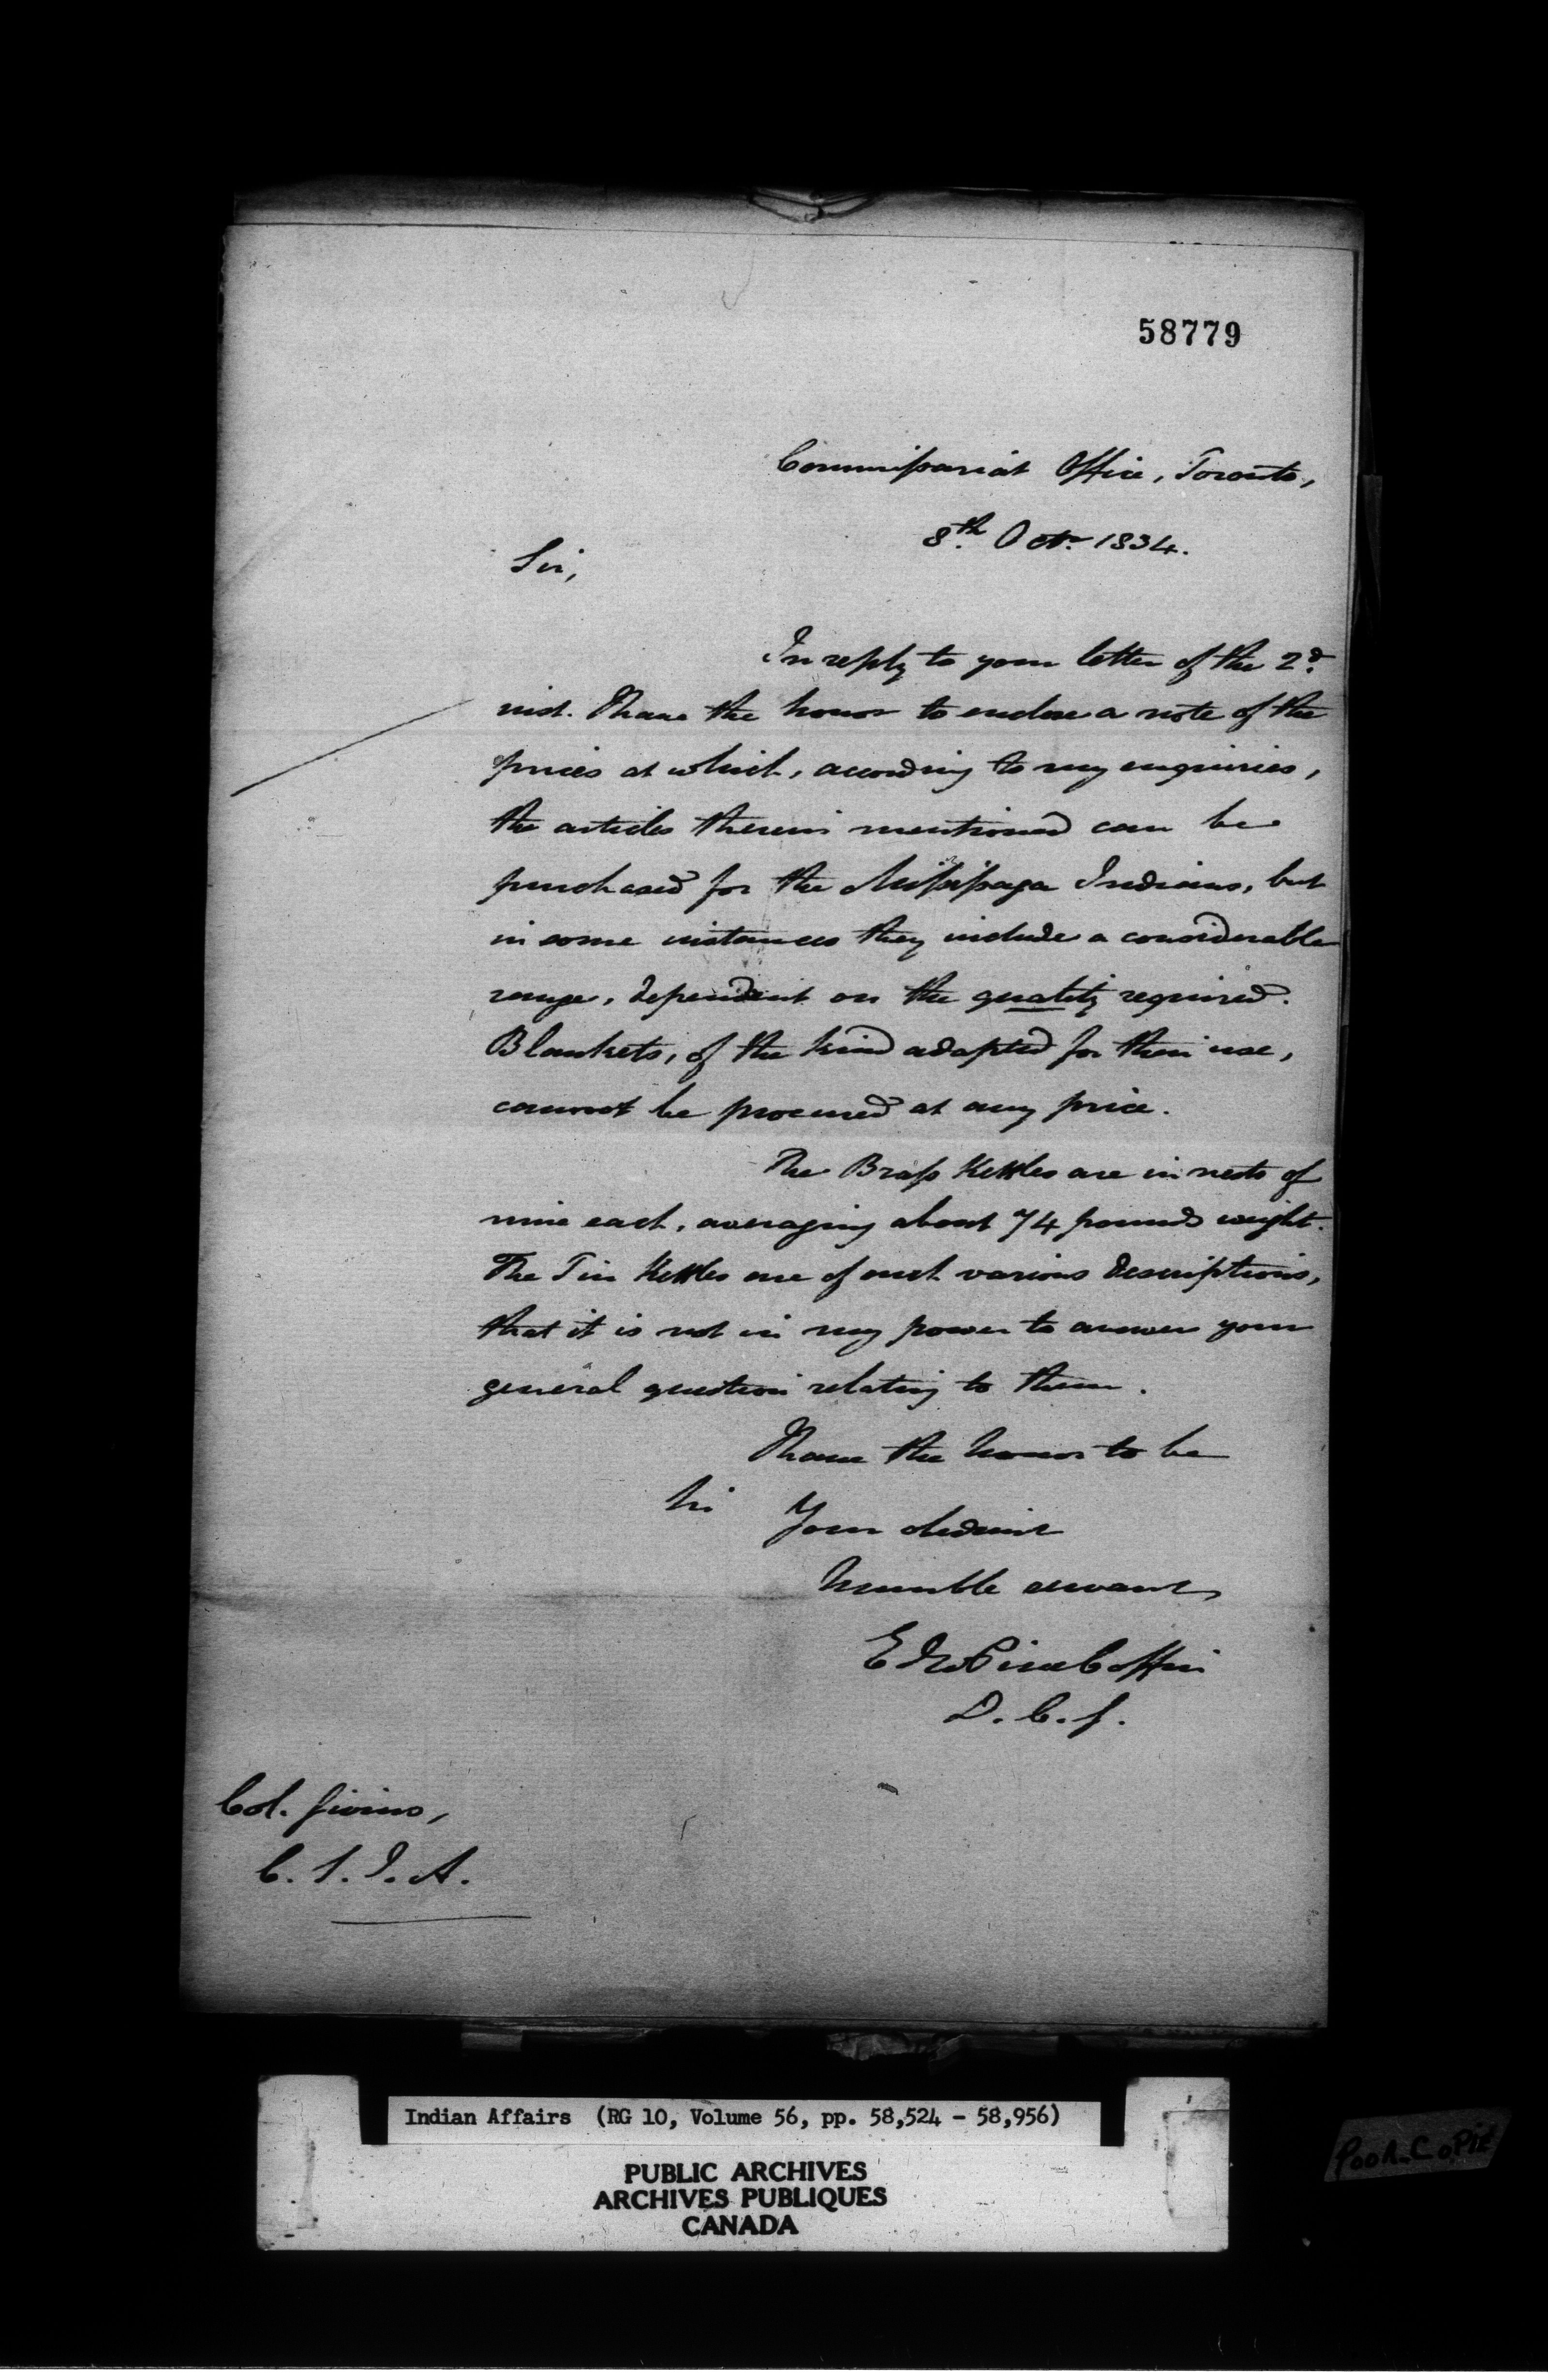 58779
Commissariat Office, Toronto,
8th Octr 1834.
Sir,
In reply to your letter of the 2d
inst. I have the honor to enclose a note of the
prices at which, according to my enquiries,
the articles therein mentioned can be
purchased for the Missisaga Indians, but
in some instances they include a considerable
range, dependent on the quality required.
Blankets, of the kind adapted for their use,
cannot be procured at any price.
The Brass Kettles are in nests of
nine each, averaging about 74 pounds weight.
The Tin Kettles are of such various descriptions,
that it is not in my power to answer your
general question relating to them.
I have the honor to be
Sir
Your obedient
humble servant,
Edw Pine Coffin
D. C. G.
Col. Givins,
C. S. I. A.
Indian Affairs (RG 10, Volume 56, pp. 58,524 - 58,956)
PUBLIC ARCHIVES
ARCHIVES PUBLIQUES
CANADA
POOR COPIE